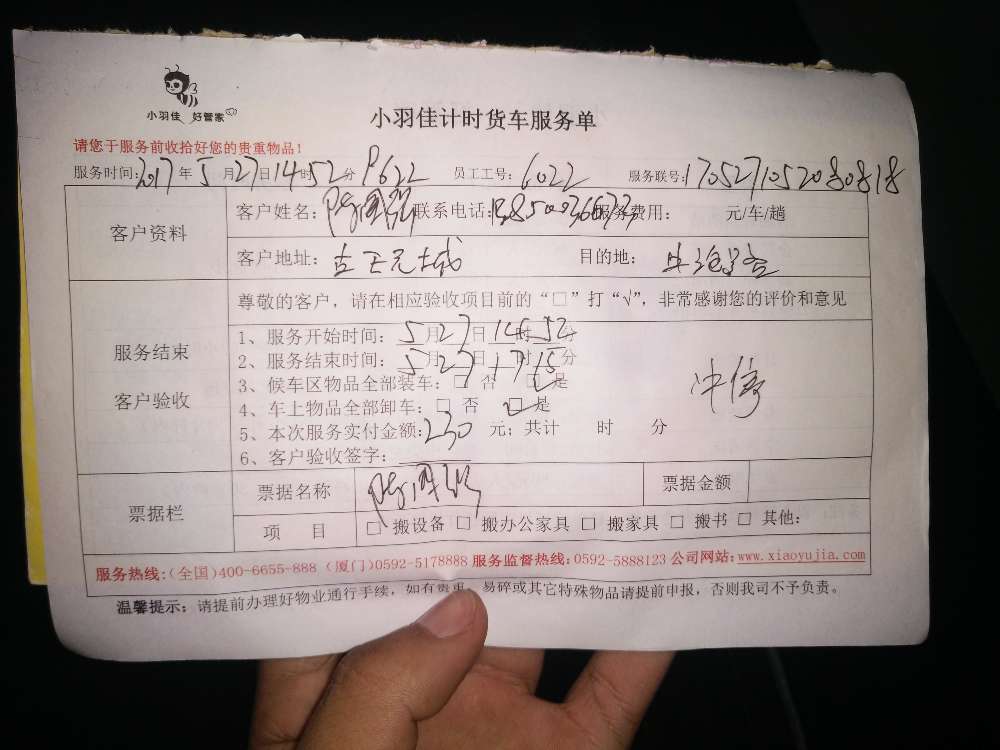 小羽佳 好管家
小羽佳计时货车服务单
请您于服务前收拾好您的贵重物品！
服务时间：2017年5月27日14时52分 P622 员工工号：6022 服务联号：1705271052080818
客户资料
客户姓名： 联系电话： 服务费用： 元/车/趟
客户地址： 目的地：
服务结束
客户验收
尊敬的客户，请在相应验收项目前的“□”打“√”，非常感谢您的评价和意见
1、服务开始时间：5月27日14时52分
2、服务结束时间：5月27日17时15分
3、候车区物品全部装车：□ 否 □ 是
4、车上物品全部卸车：□ 否 □ 是
5、本次服务实付金额：230 元；共计 时 分
6、客户验收签字：
票据栏
票据名称 票据金额
项 目 □ 搬设备 □ 搬办公家具 □ 搬家具 □ 搬书 □ 其他：
服务热线:(全国)400-6655-888 (厦门)0592-5178888 服务监督热线:0592-5888123 公司网站:www.xiaoyujia.com
温馨提示：请提前办理好物业通行手续，如有贵重、易碎或其它特殊物品请提前申报，否则我司不予负责。